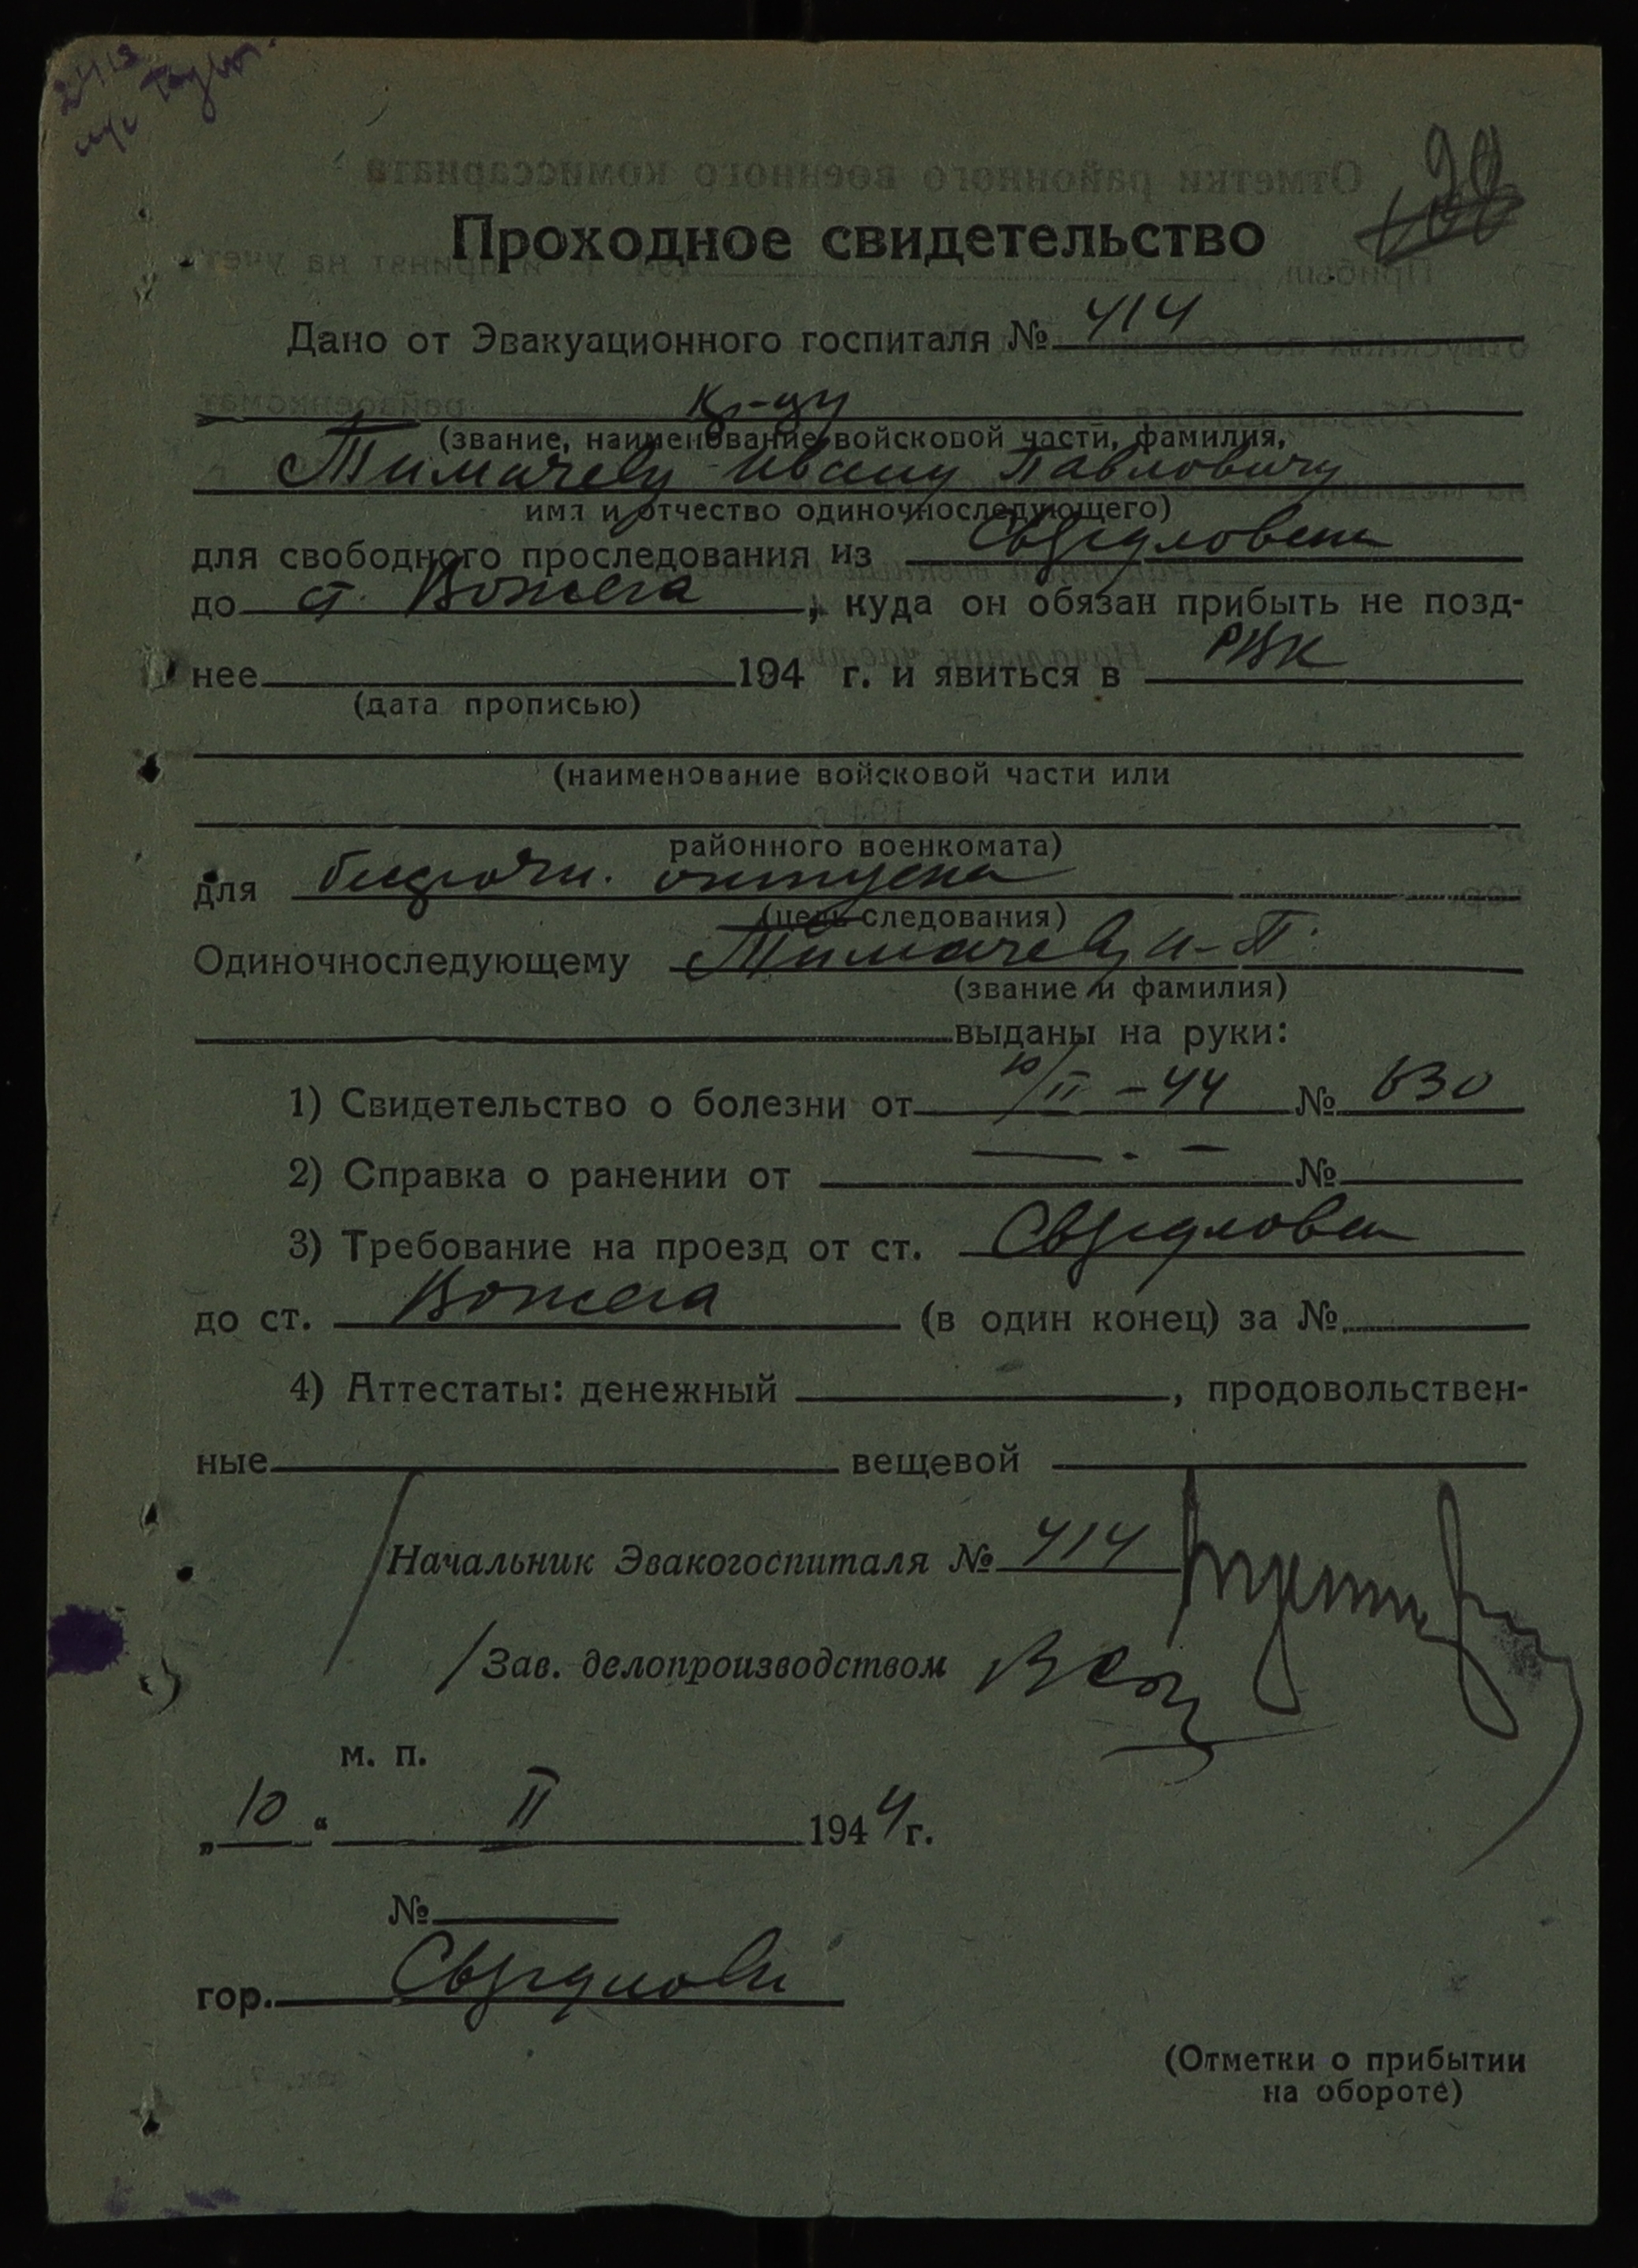 Проходное свидетельство
Дано от Эвакуационного госпиталя № 414
кр-цу
(звание, наименование войсковой части, фамилия,
Тимачеву Ивану Павловичу
имя и отчество одиночноследующего)
для свободного проследования из Свердловска
до ст. Вожега, куда он обязан прибыть не позд-
нее 194 г. и явиться в РВК
(дата прописью)
(наименование войсковой части или
районного военкомата)
для отпуска
(цель следования)
Одиночноследующему Тимачеву И. П.
(звание и фамилия)
выданы на руки:
1) Свидетельство о болезни от 10/II-44 № 630
2) Справка о ранении от — . — №
3) Требование на проезд от ст. Свердловск
до ст. Вожега (в один конец) за №
4) Аттестаты: денежный , продовольствен-
ные вещевой
Начальник Эвакогоспиталя № 414
Зав. делопроизводством
м. п.
„10“ II 1944г.
№
гор. Свердловск
(Отметки о прибытии
на обороте)